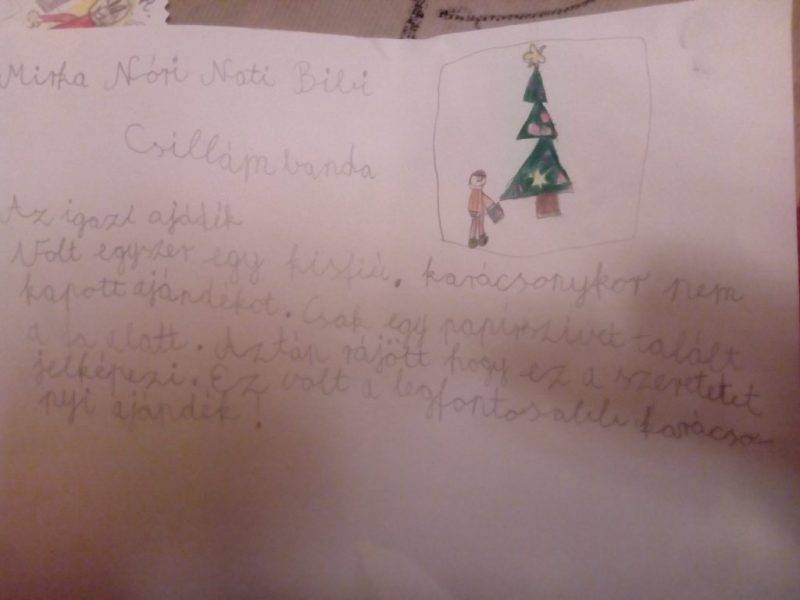 Mirka Nóri Nati Bibi
Csillám banda
Az igazi ajádék
Volt egyszer egy kisfiú. karácsonykor nem
kapott ajándékot. Csak egy papírszívet talált
a fa alatt. Aztán rájött hogy ez a szeretetet
jelképezi. Ez volt a legfontosabb karácso
nyi ajándék!